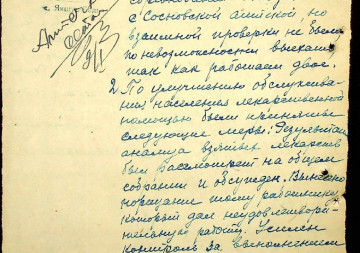 с Сосновской аптекой, но
взаимной проверки не было
по невозможности выехать,
так как работаем двое.
2. По улучшению обслужива-
ния населения лекарственной
помощью были приняты
следующие меры: Результаты
анализа взятых лекарств
был рассмотрен на общем
собрании и обсужден. Вынесено
порицание тому работнику,
который дал неудовлетвори-
тельную работу. Усилен
контроль за выполнением